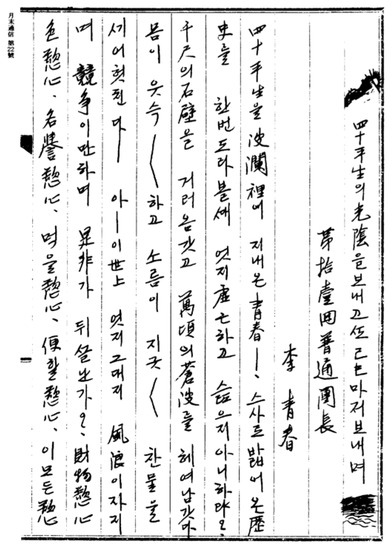 四十平生의 光陰을보내고 己巳마저보내며
第拾壹回普通團長
李 靑春
四十平生을 波瀾裡에 지내온 靑春ー. 스사로 밟어온歷
史를 한번도라볼새 엇지虛亡하고 슯으지아니하랴?
千尺의石壁을 거러옴갓고 萬頃의蒼波를 헤여남갓하
몸이 읏슥〱하고 소름이 지긋〱 한물을
세어헛친다ー 아ー이世上 엇지그대지 風浪이자지
며 競爭이만하며 是非가 뒤설는가? 財物慾心
色慾心、名譽慾心、먹을慾心、便할慾心、이모든慾心
月末通信 第22號